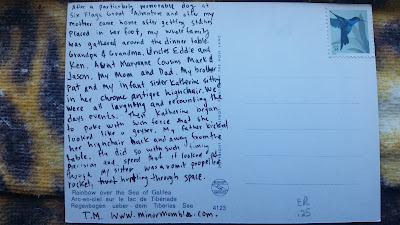 After a particularly memorable day at
Six Flags Great Adventure and after my
mother came home after getting stitches
placed in her foot, my whole family
was gathered around the dinner table.
Grandpa & Grandma. Uncles Eddie and
Ken. Aunt Maryanne Cousins Mark &
Jason. My Mom and Dad. My brother
Pat and my infant sister Katherine sitting
in her chrome antique highchair. We
were all laughing and recounting the
days events. Then Katherine began
to puke with such force that she
looked like a geyser. My father kicked
her highchair back and away from the
table. He did so with such timing
precision and speed that it looked as
though my sister was a vomit propelled
rocket, hurtling through space.
Rainbow over the Sea of Galilea
Arc-en-ciel sur le lac de Tibériade
Regenbogen ueber dem Tiberias See
4123
T.M. www.minormoumbles.com.
ER
.25